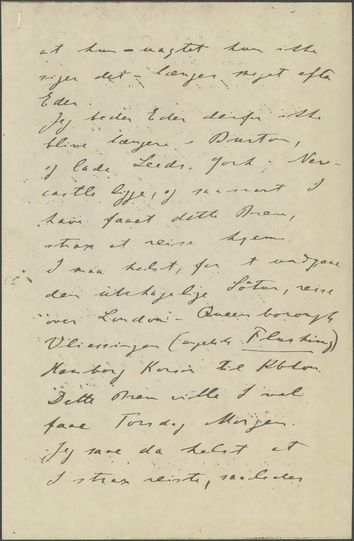 at hun – uagtet hun ikke
siger det – længes meget efter
Eder.
Jeg beder Eder derfor ikke
blive længere i Burton,
og lade Leeds, York, New-
castle ligge, og saasnart I
have faaet dette Brev,
strax at reise hjem.
I maa helst, for at undgaae
den ubehagelige Søtur, reise
over London – Queenborough
Vliessingen (engelsk Flushing)
Hamborg Korsør til Kbhvn.
Dette Brev ville I vel
faae Torsdag Morgen.
Jeg saae da helst at
I strax reiste, saaledes